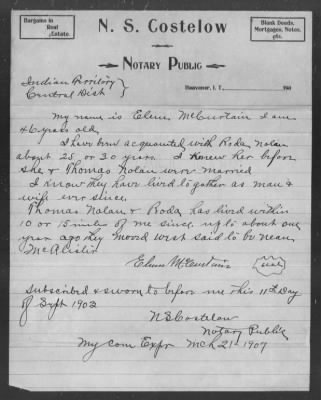 Bargains in
Real
Estate.
N. S. Costelow
Blank Deeds,
Mortgages, Notes,
&c.
NOTARY PUBLIC
Indian Territory
Central Dist
190
My name is Elum McCurtain I am
46 years old
I have bin acquanted with Roda Nolan
about 25 or 30 years. I knew her before
She & Thomas Nolan wer married
I know they have lived to gather as man &
wife ever since.
Thomas Nolan & Roda has lived within
10 or 15 miles of me since up to about one
year ago they moved west said to be near
McAlister
Elum McCurtain
seal
Subscribed & sworn to before me This 11th Day
of Sept 1902
N S Costelow
Notary Public
My Com Expr Mch 21 1907